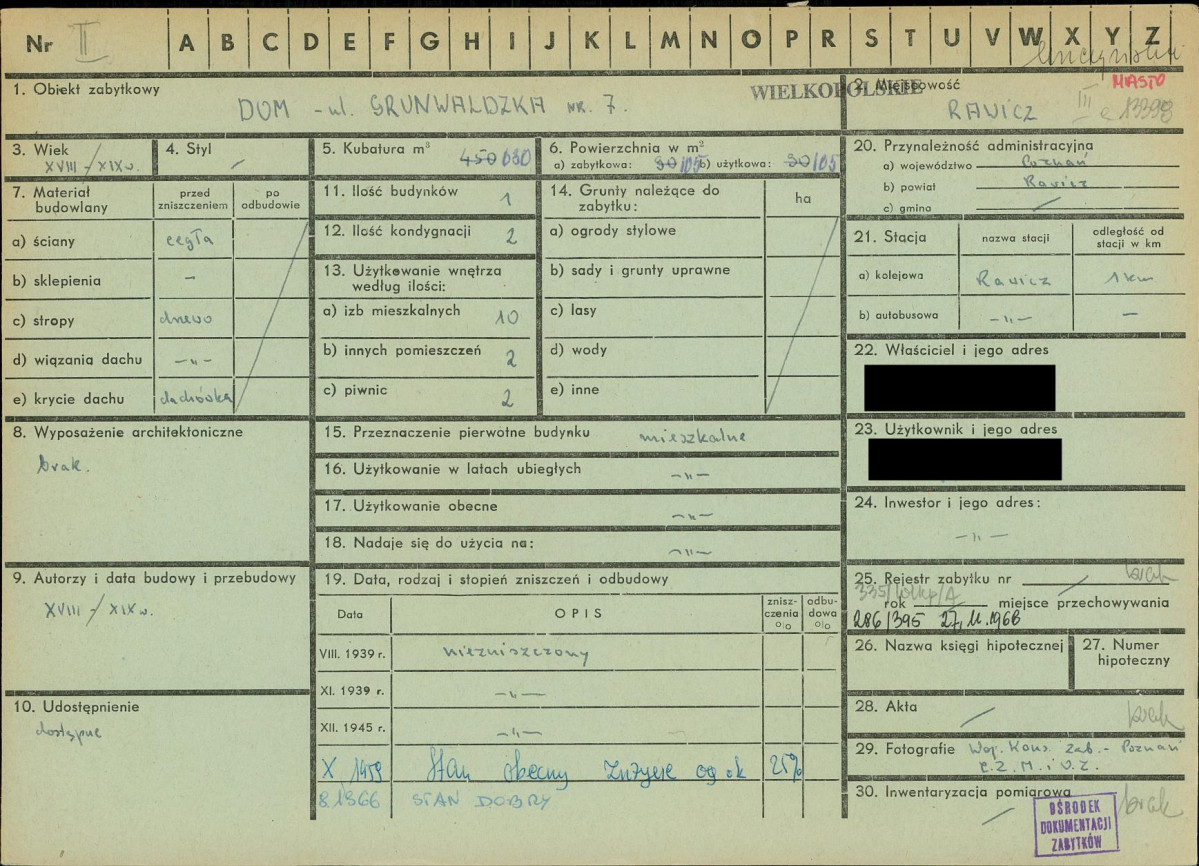 Nr II A B C D E F G H I J K L M N O P R S T U V W X Y Z
1. Obiekt zabytkowy
DOM - ul. GRUNWALDZKA NR. 7.
WIELKOPOLSKIE
2. Miejscowość MIASTO
RAWICZ III
3. Wiek
XVIII/XIX w.
4. Styl
5. Kubatura m³ 450 630
6. Powierzchnia w m²
a) zabytkowa: 90/105 b) użytkowa: 90/105
7. Materiał budowlany
przed zniszczeniem
po odbudowie
a) ściany cegła
b) sklepienia -
c) stropy drewno
d) wiązania dachu -„-
e) krycie dachu dachówka
8. Wyposażenie architektoniczne
brak.
9. Autorzy i data budowy i przebudowy
XVIII/XIX w.
10. Udostępnienie
dostępne
11. Ilość budynków 1
12. Ilość kondygnacji 2
13. Użytkowanie wnętrza
według ilości:
a) izb mieszkalnych 10
b) innych pomieszczeń 2
c) piwnic 2
14. Grunty należące do
zabytku:
ha
a) ogrody stylowe
b) sady i grunty uprawne
c) lasy
d) wody
e) inne
15. Przeznaczenie pierwotne budynku mieszkalne
16. Użytkowanie w latach ubiegłych -„-
17. Użytkowanie obecne -„-
18. Nadaje się do użycia na: -„-
19. Data, rodzaj i stopień zniszczeń i odbudowy
Data
OPIS
znisz-
czenia
%
odbu-
dowa
%
VIII. 1939 r. niezniszczony
XI. 1939 r. -„-
XII. 1945 r. -„-
X 1959 Stan obecny Zużycie og. ok 25%
8.1966 STAN DOBRY
20. Przynależność administracyjna
a) województwo Poznań
b) powiat Rawicz
c) gmina
21. Stacja
nazwa stacji
odległość od
stacji w km
a) kolejowa Rawicz 1 km
b) autobusowa -„- -
22. Właściciel i jego adres
23. Użytkownik i jego adres
24. Inwestor i jego adres:
-„-
25. Rejestr zabytku nr brak
335/Wlkp/A
rok miejsce przechowywania
286/395 27.11.1968
26. Nazwa księgi hipotecznej
27. Numer
hipoteczny
28. Akta brak
29. Fotografie Woj. Kons. Zab. - Poznań
C.Z.M. i O.Z.
30. Inwentaryzacja pomiarowa
brak
OŚRODEK
DOKUMENTACJI
ZABYTKÓW